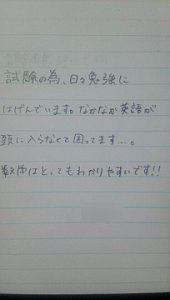 試験の為、日々勉強に
はげんでいます。なかなか英語が
頭に入らなくて困ってます…。
数学はとってもわかりやすいです!!